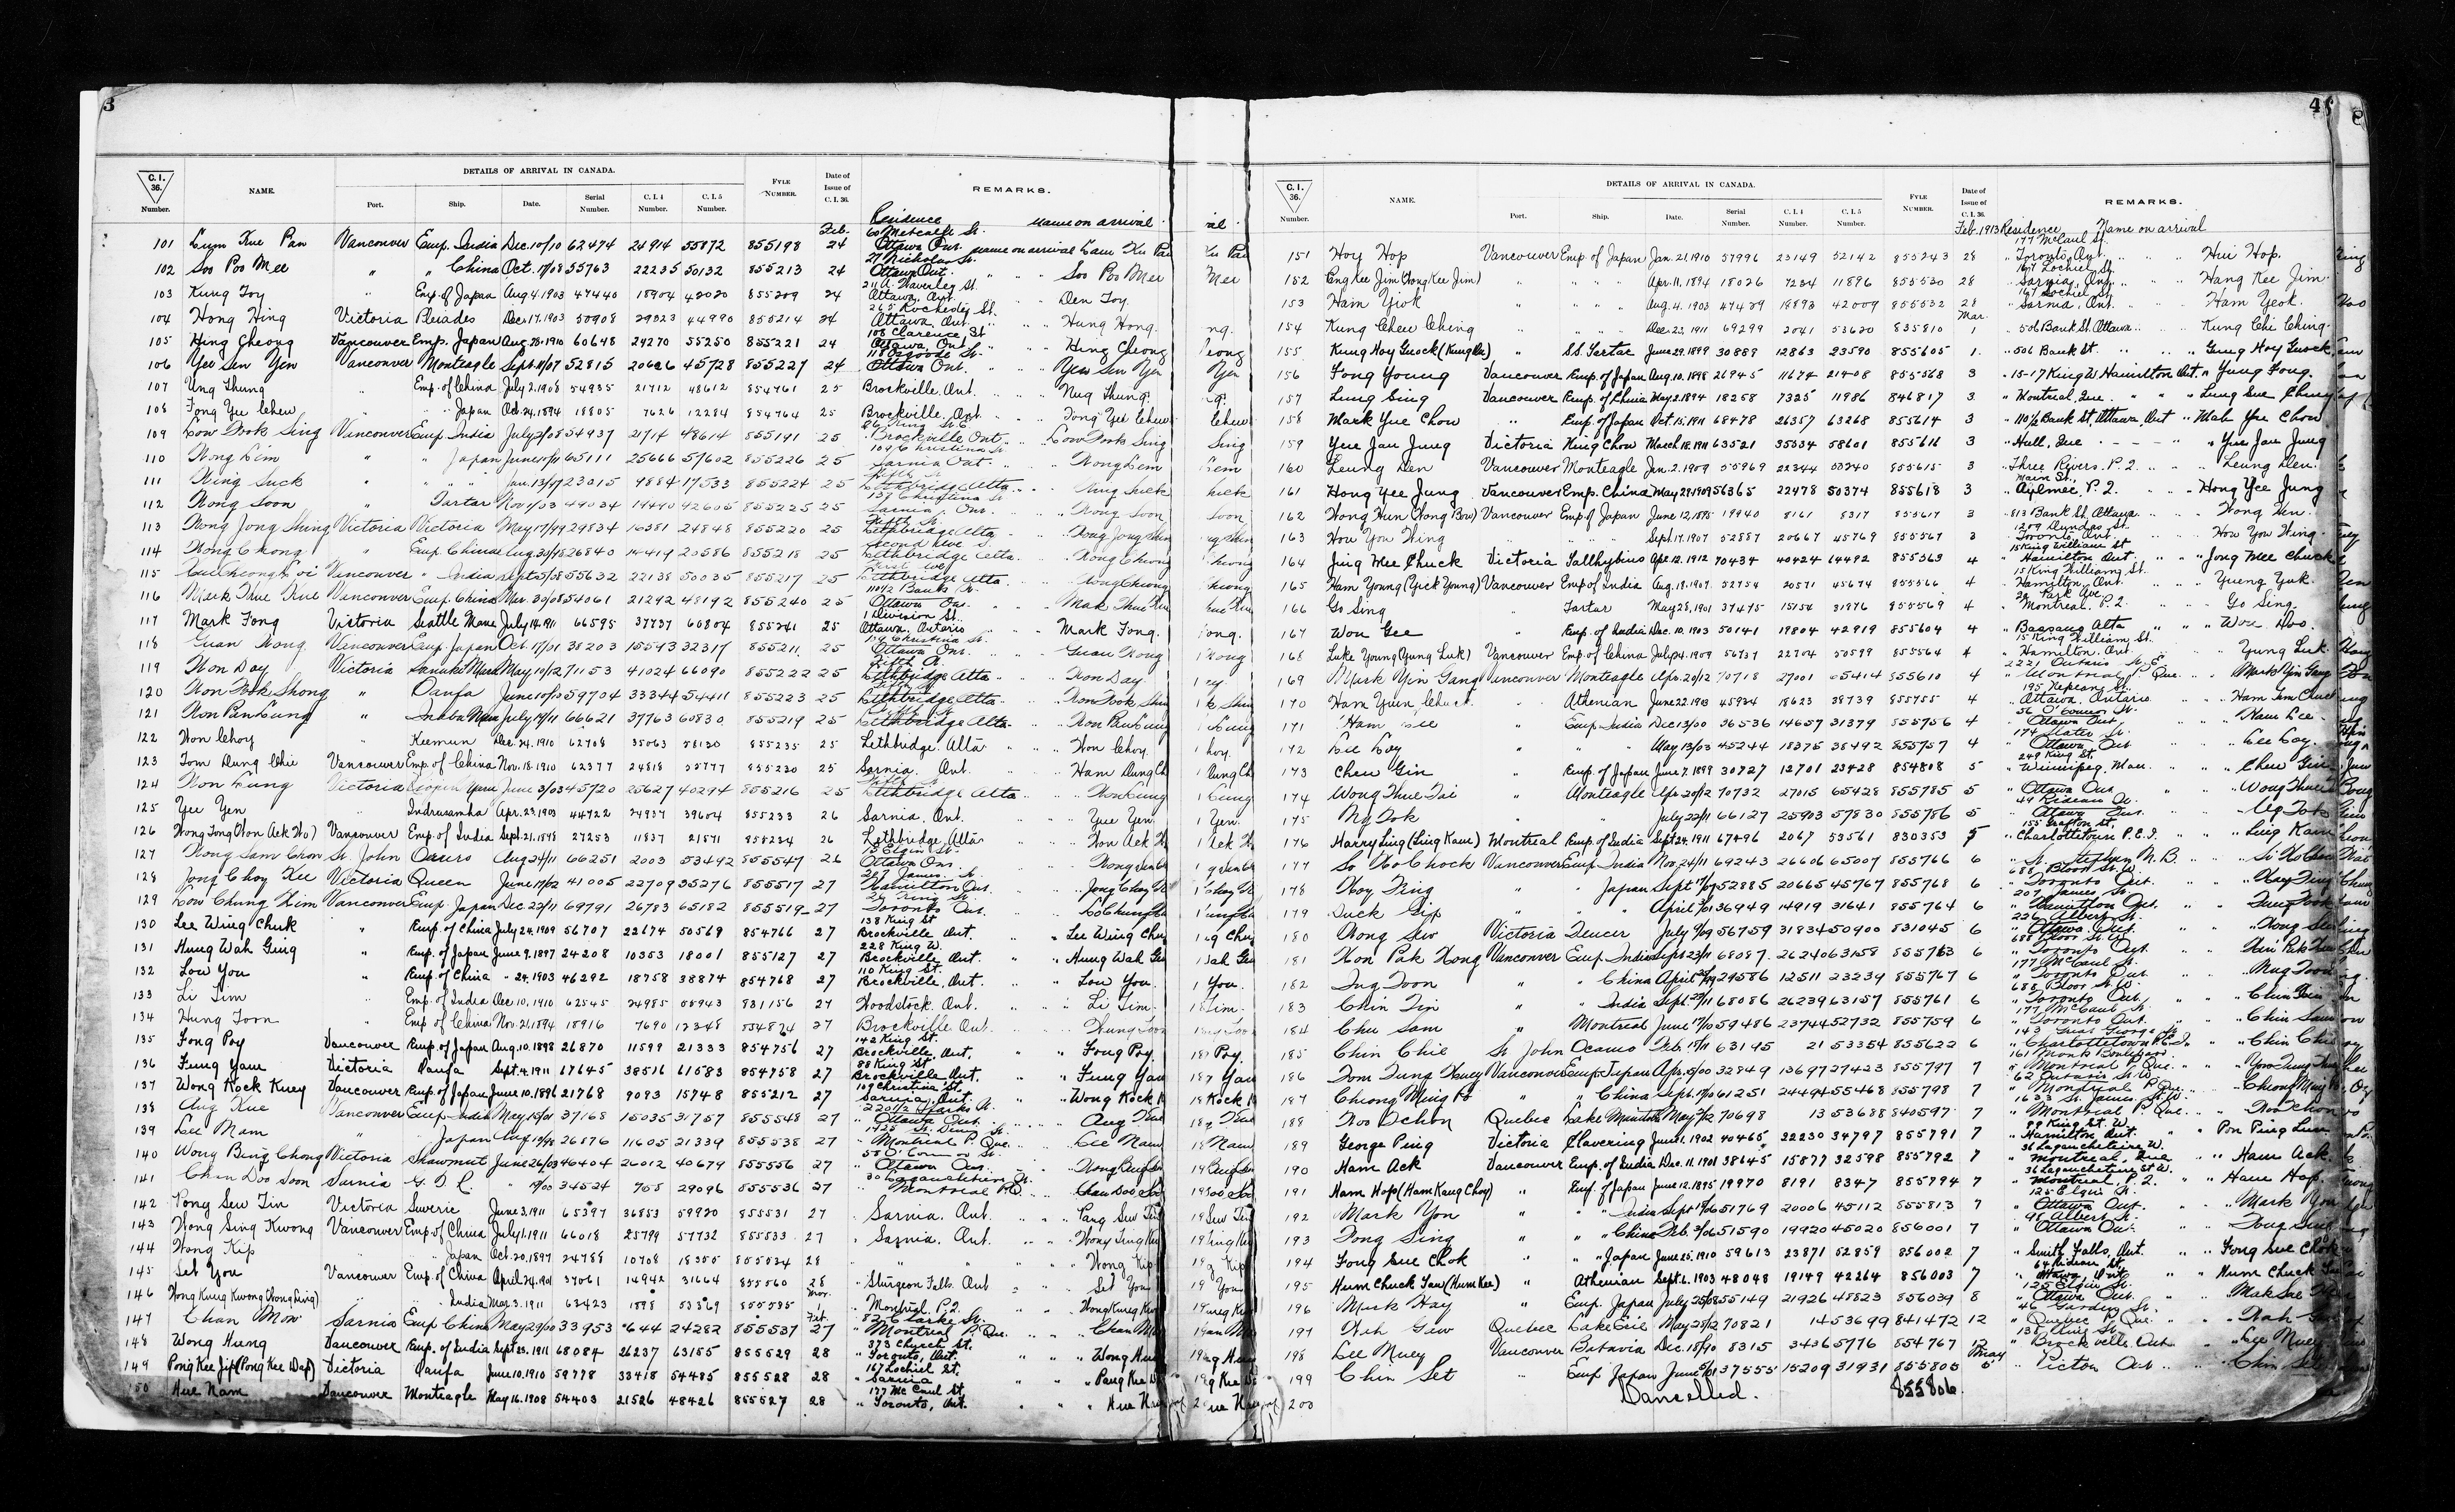 3
C. I. 36. Number. NAME. DETAILS OF ARRIVAL IN CANADA. Port. Ship. Date. Serial Number. C. I. 4 Number. C. I. 5 Number. FYLE NUMBER. Date of Issue of C. I. 36. REMARKS.
Feb. Residence Name on arrival
101 Lum Kue Pan Vancouver Emp. India Dec. 10/10 62474 24914 55872 855198 24 60 Metcalfe St. Ottawa Ont. name on arrival Lam Ku Pan
102 Soo Poo Mee " " China Oct. 17/08 55763 22235 50132 855213 24 27 Nicholas St. Ottawa Ont. " " Soo Poo Mee
103 Kung Toy " Emp. of Japan Aug. 4. 1903 47440 18904 42020 855209 24 Ottawa, Ont. " " Den Toy.
104 Hong Hing Victoria Pleiades Dec. 17. 1903 50908 29323 44990 855214 24 265 Rochester St. Ottawa, Ont. " " Hung Hong.
105 Hing Cheong Vancouver Emp. Japan Aug. 28. 1910 60648 24270 55250 855221 24 108 Clarence St Ottawa, Ont. " " Hing Cheong
106 Yee Sen Yen Vancouver Monteagle Sept. 11/07 52815 20626 45728 855227 24 118 Osgoode St. Ottawa Ont. " " Yew Sen Yen
107 Ung Thung " Emp. of China July 2. 1908 54935 21712 48612 854761 25 Brockville. Ont. " " Nug Thung.
108 Fong Yee Chew " " Japan Oct. 24. 1894 18805 7626 12284 854764 25 Brockville, Ont. " " Fong Yee Chew
109 Low Fook Sing Vancouver Emp. India July 2/08 54937 21714 48614 855191 25 Brockville Ont. " " Low Fook Sing
110 Wong Lem " " Japan June 11/11 65111 25666 57602 855226 25 104 Christina St. Sarnia Ont. " " Wong Lem
111 Wing Suck " " " Jan. 13/97 23015 9884 17533 855224 25 Lethbridge Alta. " "
112 Wong Soon " Tartar Nov 1/03 49034 19440 42605 855225 25 137 Christina St Sarnia, Ont. " " Wong Soon
113 Wong Jong Shing Victoria Victoria May 17/99 29834 16381 24848 855220 25 Fifth St. Lethbridge Alta " " Wong Jong Shin
114 Wong Chong " Emp. China Aug 31/98 26840 14419 20586 855218 25 Lethbridge Alta. " " Wong Cheong
115 Vancouver " India Sept 5/08 55632 22138 50035 855217 25 Lethbridge Alta.
116 Mark Thue Kue Vancouver Emp. China Mar. 30/08 54061 21292 48192 855240 25 110½ Bank St. Ottawa Ont. " " Mak Thue Kue
117 Mark Fong Victoria Seattle Maru July 14. 1911 66595 37737 60804 855241 25 1 Division St. Ottawa, Ontario " " Mark Fong.
118 Guan Wong Vancouver Emp. Japan Oct. 17/01 38203 15543 32317 855211 25 104 Christina St. Ottawa Ont. " " Guan Wong
119 Won Day Victoria Sanuki Maru May 10/12 71153 41024 66090 855222 25 Fifth St. Lethbridge Alta " " Won Day.
120 Won Fook Shong " Oanfa June 10/10 59704 33344 54411 855223 25 Lethbridge Alta. " " Won Fook Shin
121 Won Pan Lung " Inaba Maru July 19/11 66621 37763 60830 855219 25 Lethbridge Alta. " " Won Pan Lung
122 Won Choy " Keemun Dec. 24. 1910 62708 35063 58130 855235 25 Lethbridge. Alta " " Won Choy.
123 Tom Dung Chie Vancouver Emp. of China Nov. 18. 1910 62377 24818 55777 855230 25 Sarnia. Ont. " " Ham Dung Ch
124 Won Lung Victoria June 3/03 45720 25627 40294 855216 25 Lethbridge Alta " " Won Lung
125 Yee Yen " Indrasamha Apr. 23. 1903 44722 24937 39604 855233 26 Sarnia. Ont. " " Yue Yen
126 Wong Tong (Won Ack Wo) Vancouver Emp. of India Sept. 21. 1898 27253 11837 21571 855234 26 Lethbridge, Alta " " Won Ack W
127 Wong Sam Chon St. John Aug 24/11 66251 2003 53492 855547 26 15 Elgin St. Ottawa Ont.
128 Jong Choy Kee Victoria Queen June 17/02 41005 22709 35276 855517 27 207 James St. Hamilton Ont. " " Jong Choy
129 Low Chung Kim Vancouver Emp. Japan Dec. 22/11 69791 26783 65182 855519 27 Toronto Ont. " " Lo Chung
130 Lee Wing Chuck " Emp. of China July 24. 1909 56707 22674 50569 854766 27 138 King St Brockville Ont. " " Lee Wing Chu
131 Hung Wah Ging " Emp. of Japan June 9. 1897 24208 10353 18001 855127 27 228 King W. Brockville Ont. " " Hung Wah Gin
132 Low You " Emp. of China " 24. 1903 46292 18758 38874 854768 27 110 King St. Brockville, Ont. " " Low You.
133 Li Tim " Emp. of India Dec 10, 1910 62545 24985 55943 831156 27 Woodstock. Ont. " " Li Tim.
134 Hung Toon " Emp of China Nov. 21. 1894 18916 7690 12348 27 Brockville Ont. " " Hung Toon
135 Fong Poy Vancouver Emp. of Japan Aug. 10. 1898 26870 11599 21333 854756 27 142 King St. Brockville, Ont. " " Fong Poy.
136 Fung Yam Victoria Oanfa Sept. 4. 1911 67645 38516 61583 854758 27 88 King St Brockville Ont. " " Fung Yam
137 Wong Kock Kuey Vancouver Emp. of Japan June 10. 1896 21768 9093 15748 855212 27 109 Christina St. Sarnia, Ont. " " Wong Kock K
138 Aug Kue Vancouver Emp. India May 15/01 37168 15035 31757 855548 27 220½ Sparks St. Ottawa Ont. " " Aug Kue
139 Lee Mam " " Japan Aug 10/98 26876 11605 21339 855538 27 Montreal P. Que. " " Lee Mam
140 Wong Bing Chong Victoria Shawmut June 26/03 46404 26012 40679 855556 27 58 O'Connor St. Ottawa Ont.
141 Chan Doo Soon Sarnia G. T. R. " 19/00 34524 755 29096 855536 27 Montreal P.Q. " " Chan Doo So
142 Pong Sew Tin Victoria Suveric June 3. 1911 65397 36853 59920 855531 27 " Sarnia. Ont. " " Pang Sew Tin
143 Wong Sing Kwong Vancouver Emp. of China July 1. 1911 66018 25799 57732 855533 27 " Sarnia. Ont. " " Wong Sing Kw
144 Wong Kip " " Japan Oct. 20. 1897 24788 10708 18355 855534 28 " " " Wong Kip
145 Set You Vancouver Emp. of China April 24. 1901 37061 14942 31664 855560 28 " Sturgeon Falls. Ont " Set You
146 Wong Kung Kwong (Wong Sing) " " India Mar. 3. 1911 63423 1898 53369 855535 Mar. 1 " Montreal. P.2. " " Wong Kung Kw
147 Chan Mow Sarnia Emp China May 29/00 33953 644 24282 855537 Feb. 27 Montreal P. Que. " " Chan M
148 Wong Hung Vancouver Emp. of India Sept. 23. 1911 68084 26237 63155 855529 28 373 Church St. Toronto, Ont " " Wong Hu
149 Pong Kee Jip (Pong Kee Dap) Victoria Oanfa June 10. 1910 59778 33418 54485 855528 28 167 Lochiel St. Sarnia " " Pang Kee
150 Hue Nam Vancouver Monteagle May 16. 1908 54403 21526 48426 855527 28 177 Mc Caul St. " Toronto, Ont. " " Hue Nam
4
C. I. 36. Number. NAME. DETAILS OF ARRIVAL IN CANADA. Port. Ship. Date. Serial Number. C. I. 4 Number. C. I. 5 Number. FYLE NUMBER. Date of Issue of C. I. 36. REMARKS.
Feb. 1913 Residence Name on arrival
151 Hoy Hop Vancouver Emp of Japan Jan. 21. 1910 57996 23149 52142 855243 28 177 McCaul St. " Toronto, Ont. " " Hui Hop.
152 Eng Kee Jim (Hong Kee Jim) " " " Apr. 11. 1894 18026 7234 11896 855530 28 167 Lochiel St. Sarnia, Ont. " " Hang Kee Jim
153 Ham Yeok " " " Aug. 4. 1903 47439 18893 42009 855532 28 167 Lochiel St. " Sarnia, Ont " " Ham Yeok.
154 Kung Chew Ching " " " Dec. 23. 1911 69299 2041 53620 835810 Mar. 1 " 506 Bank St. Ottawa " " Kung Chi Ching.
155 Kung Hoy Guock (Kung Lee) " S.S. Tartar June 29. 1899 30889 12863 23590 855605 1. " 506 Bank St. " " Gung Hoy Guock
156 Fong Young Vancouver Emp. of Japan Aug. 10. 1898 26945 11674 21408 855568 3 " 15-17 King W. Hamilton Ont. " Yung Fong.
157 Lung Sing Vancouver Emp. of China May 2. 1894 18258 7325 11986 846817 3 " Montreal, Que. " " Lung Sue Chung
158 Mark Yue Chow " Emp. of Japan Oct. 15. 1911 68478 26357 63268 855614 3 " 110½ Bank St, Ottawa, Ont " Mah Yue Chow
159 Yue Jan Jung Victoria King Chow March 18. 1911 63521 35534 58601 855616 3 " Hull, Que " Yue Jan Jung
160 Leung Den Vancouver Monteagle Jan. 2. 1909 55969 22344 50240 855615 3 " Three Rivers. P.2. " " Leung Den.
161 Hong Yee Jung Vancouver Emp. China May 29. 1909 56365 22478 50374 855618 3 Main St., " Aylmer, P.2. " " Hong Yee Jung
162 Wong Hun (Wong Bow) Vancouver Emp. of Japan June 12, 1895 19940 8161 8317 855617 3 " 813 Bank St. Ottawa " " Wong Hun.
163 How You Hing " " Sept. 17. 1907 52887 20667 45769 855567 3 1209 Dundas St. " Toronto, Ont. " " How You Hing.
164 Jing Mee Chuck Victoria Talthybius Apr. 12. 1912 70434 40424 64492 855563 4 15 King William St " Hamilton Ont. " " Jong Mee Chuck
165 Ham Young (Yuck Young) Vancouver Emp of India Aug. 19. 1907 52754 20571 45674 855566 4 15 King William St. Hamilton, Ont. " " Yueng Yuk.
166 Go Sing " Tartar May 28. 1901 37475 15154 31876 855569 4 Park Ave " Montreal. P.2. " " Go Sing.
167 Won Gee " Emp. of India Dec. 10. 1903 50141 19804 42919 855604 4 " Bassano Alta " " Won Doo.
168 Luke Young (Yung Luk) Vancouver Emp of China July 24. 1909 56737 22704 50599 855564 4 15 King William St. " Hamilton. Ont. " " Yung Luk
169 Mark Yin Gang Vancouver Monteagle Apr. 20/12 70718 27001 65414 855610 4 2221 Ontario St. E. " Montreal P. Que. " Mark Yin Gang
170 Ham Yuen Chuck " Athenian June 22. 1903 45934 18623 38739 855755 4 195 Nepean St. " Ottawa, Ontario " " Ham Yem Chuck
171 Ham Lee " Emp. India Dec 13/00 36536 14657 31379 855756 4 56 O'Connor St. Ottawa Ont " " Ham Lee
172 Lee Loy " " May 13/03 45244 18375 38492 855757 4 174 Slater St. " Ottawa Ont " " Lee Loy.
173 Chew Gin " Emp. of Japan June 7. 1899 30727 12701 23428 854808 5 249 King St. " Winnipeg. Man. " " Chew Gin
174 Wong Thue Tai " Monteagle Apr 20/12 70732 27015 65428 855785 5 " Ottawa Ont " " Wong Thue
175 Ng Tok " " July 22/11 66127 25903 57830 855786 5 49 Rideau St. " Ottawa Ont. " " Ug Tok
176 Harry Ling (Ling Kaue) Montreal Emp. of India Sept. 24. 1911 67496 2067 53561 830353 5 155 Grafton St. " Charlottetown P.E.I. " " Ling Kam
177 So Who Chock Vancouver Emp. India Nov. 24/11 69243 26606 65007 855766 6 " St. Stephen N.B. " "
178 Hoy Fing " " Japan Sept 17/07 52885 20665 45767 855768 6 688 Bloor St. W. " Toronto Ont. " " Hoy Fing
179 Duck Gip " " " April 7/01 36949 14919 31641 855764 6 207 James St. " Hamilton Ont.
180 Wong Sew Victoria Teucer July 9/09 56759 31834 50400 831045 6 226 Albert St. " Ottawa Ont. " " Wong Sew
181 Won Pak Hong Vancouver Emp India Sept 23/11 68087 26240 63158 855763 6 688 Bloor St. W. " Toronto Ont. " "
182 Ing Toon " " China April 25/99 29586 12511 23239 855767 6 177 McCaul St. " Toronto Ont. " " Nug Toon
183 Chin Tin " " India Sept. 23/11 68086 26239 63157 855761 6 688 Bloor St. W. " Toronto Ont. " "
184 Chu Sam " Montreal June 17/10 59486 23744 52732 855759 6 177 McCaul St. " Toronto Ont. " " Chin Sam
185 Chin Chie St. John Feb. 15/11 63195 21 53354 855622 6 Charlottetown P.E.I. " " Chin Chi
186 Tom Tung Vancouver Emp. Japan Apr. 5/00 32849 13697 27423 855797 7 161 Monk Boulevard. " Montreal P. Que.
187 Cheong Ming Po " " China Sept. 17/10 61251 24494 55468 855798 7 62 Ontario St. W. " Montreal P. Que. " "
188 Woo Dchon Quebec Lake Manitoba May 5/12 70698 13 53688 840597 7 1633 St. James St. W. " Montreal P. Que. " " Woo Dchon
189 George Ping Victoria Clavering June 1. 1902 40465 22230 34797 855791 7 99 King St. W. " Hamilton, Ont. " " Pon Ping Lum
190 Ham Ack Vancouver Emp. of India Dec. 11. 1901 38645 15877 32598 855792 7 36 Lagauchetiere W. " Montreal, Que " " Ham Ack
191 Ham Hop (Ham Kaug Choy) " Emp. of Japan June 12. 1895 19970 8191 8347 855794 7 36 Lagauchetiere St W. " Montreal, P.2. " " Ham Hop.
192 Mark Yon " " India Sept 17/06 51769 20006 45112 855813 7 125 Elgin St. " Ottawa Ont. " " Mark Yon
193 Tong Sing " " China Feb. 3/06 51590 19920 45020 856001 7 Albert St. " Ottawa Ont. " " Tong Sing
194 Fong Sue Chok " " Japan June 25. 1910 59613 23871 52859 856002 7 " Smith Falls, Ont. " " Fong Sue Chok
195 Hum Chuck Yau (Hum Kee) " Athenian Sept. 6. 1903 48048 19149 42264 856003 7 64 Rideau St. " Ottawa, Ont " " Hum Chuck
196 Mark Hay " Emp. Japan July 25/08 55149 21926 48823 856039 8 125 Elgin St. " Ottawa Ont. " "
197 Wah Gew Quebec Lake Erie May 28/12 70821 14 53699 841472 12 46 Garden St. " Quebec P. Que. " " Wah
198 Lee Muey Vancouver Batavia Dec. 18/90 8315 3436 5776 854767 12 138 King St. " Brockville Ont. " " Lee Muey
199 Chin Set " Emp Japan June 5/01 37555 15209 31931 855805 May 5 " Picton Ont " " Chin Set
200 Cancelled. 855806.